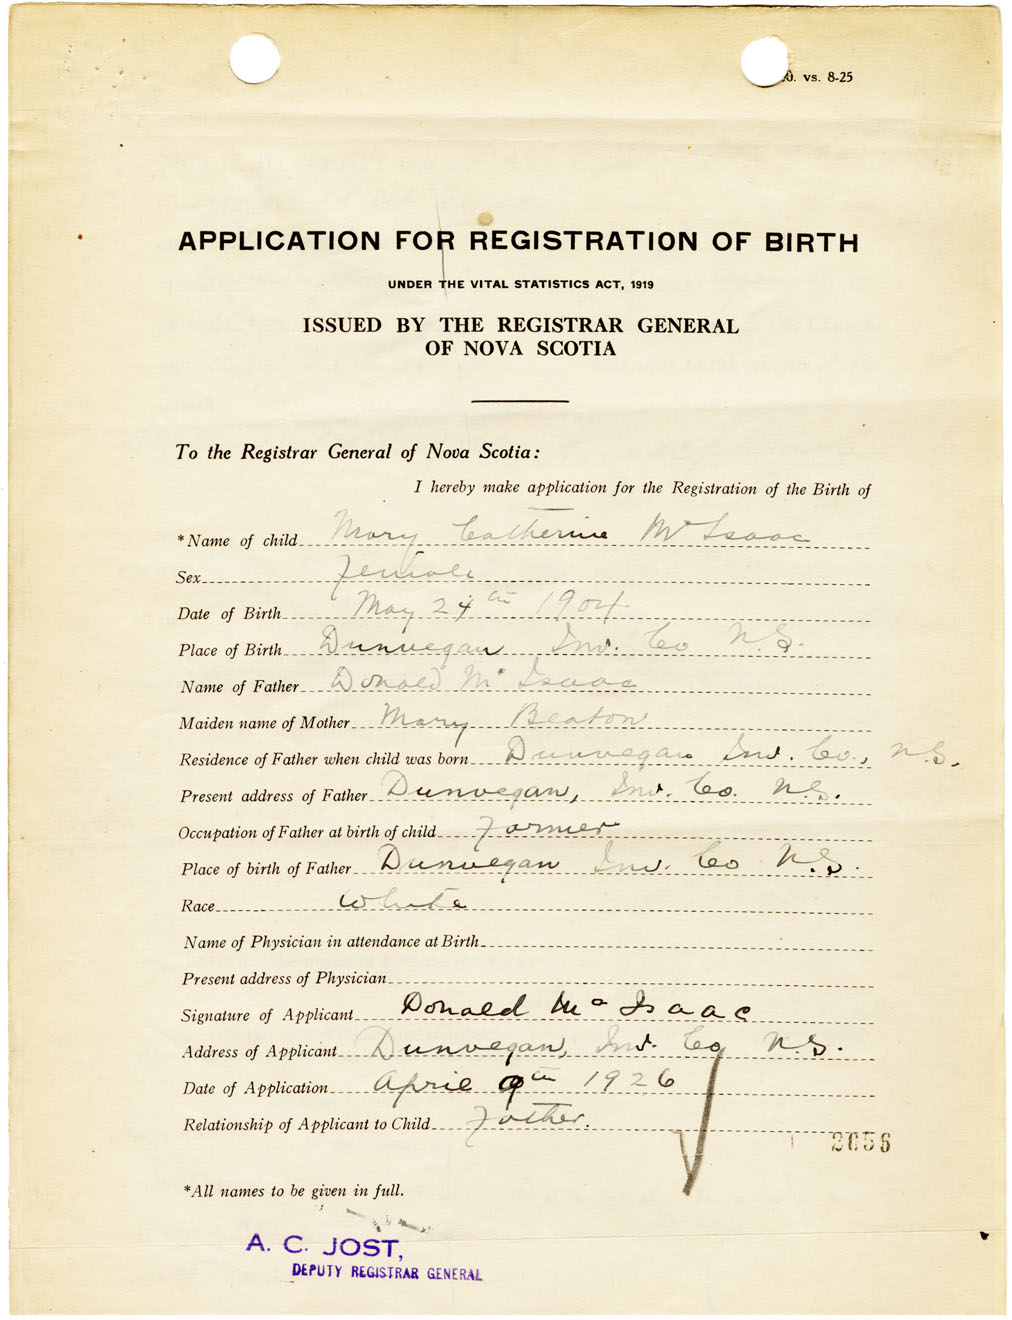 0. vs. 8-25
APPLICATION FOR REGISTRATION OF BIRTH
UNDER THE VITAL STATISTICS ACT, 1919
ISSUED BY THE REGISTRAR GENERAL
OF NOVA SCOTIA
To the Registrar General of Nova Scotia:
I hereby make application for the Registration of the Birth of
*Name of child Mary Catherine Mc Isaac
Sex Female
Date of Birth May 24th 1904
Place of Birth Dunvegan Inv. Co N.S.
Name of Father Donald Mc Isaac
Maiden name of Mother Mary Beaton
Residence of Father when child was born Dunvegan Inv. Co., N.S.
Present address of Father Dunvegan, Inv. Co. N.S.
Occupation of Father at birth of child Farmer
Place of birth of Father Dunvegan Inv. Co N.S.
Race White
Name of Physician in attendance at Birth
Present address of Physician
Signature of Applicant Donald Mc Isaac
Address of Applicant Dunvegan, Inv. Co N.S.
Date of Application April 9th 1926
Relationship of Applicant to Child Father.
2656
*All names to be given in full.
A. C. JOST,
DEPUTY REGISTRAR GENERAL